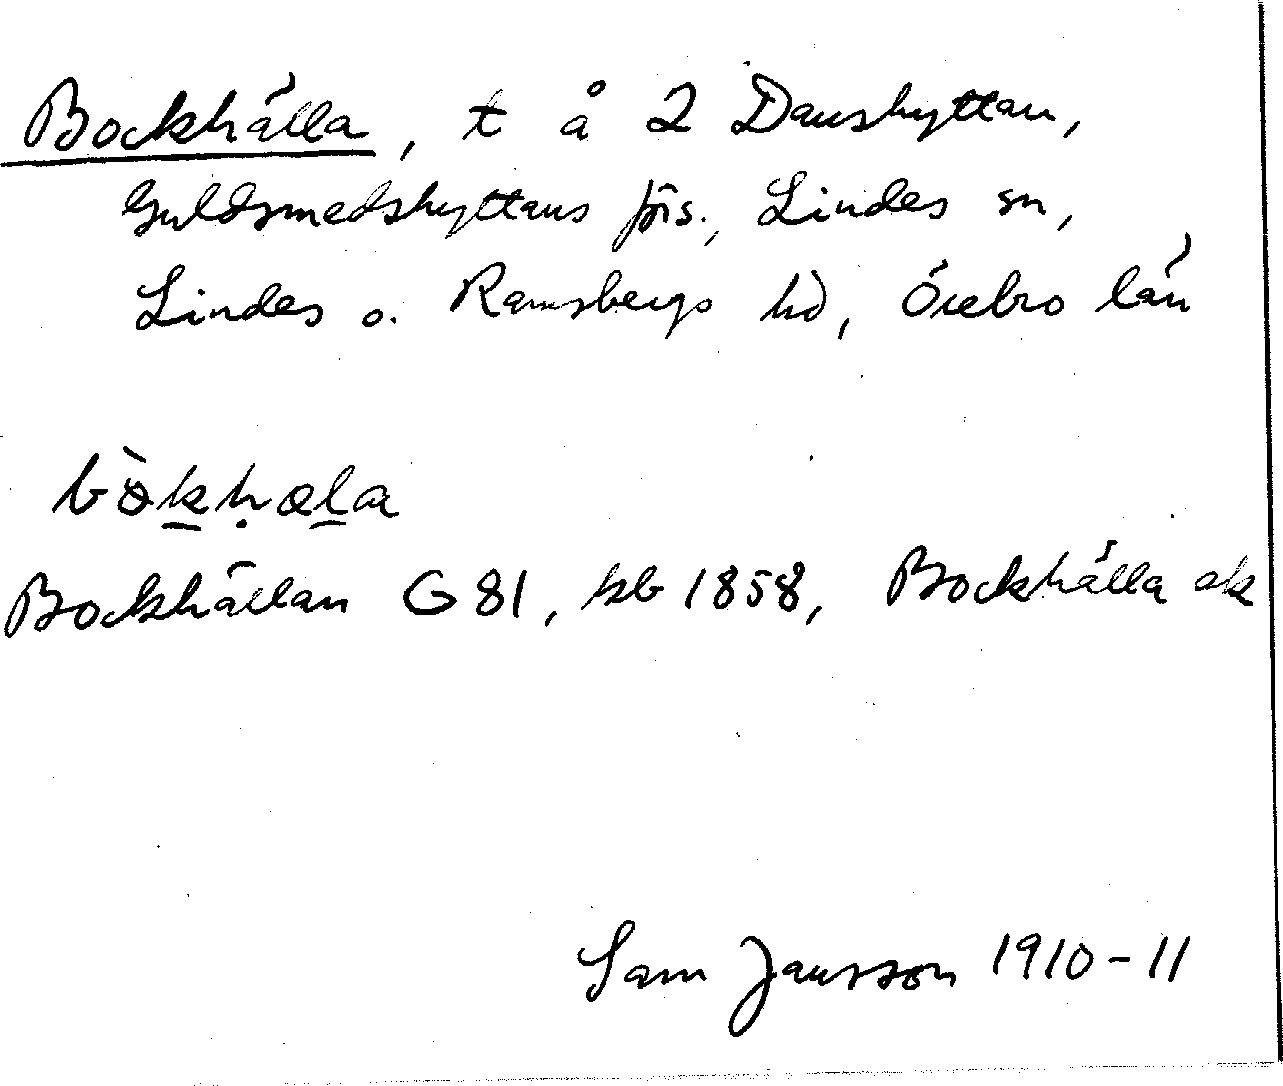 Bockhälla, t å 2 Danshyttan,
Guldsmedshyttans förs., Lindes sn,
Lindes o. Ramsbergs hd, Örebro län
Bockhällan G 81, kb 1858, Bockhälla ek
Sam Jansson 1910-11